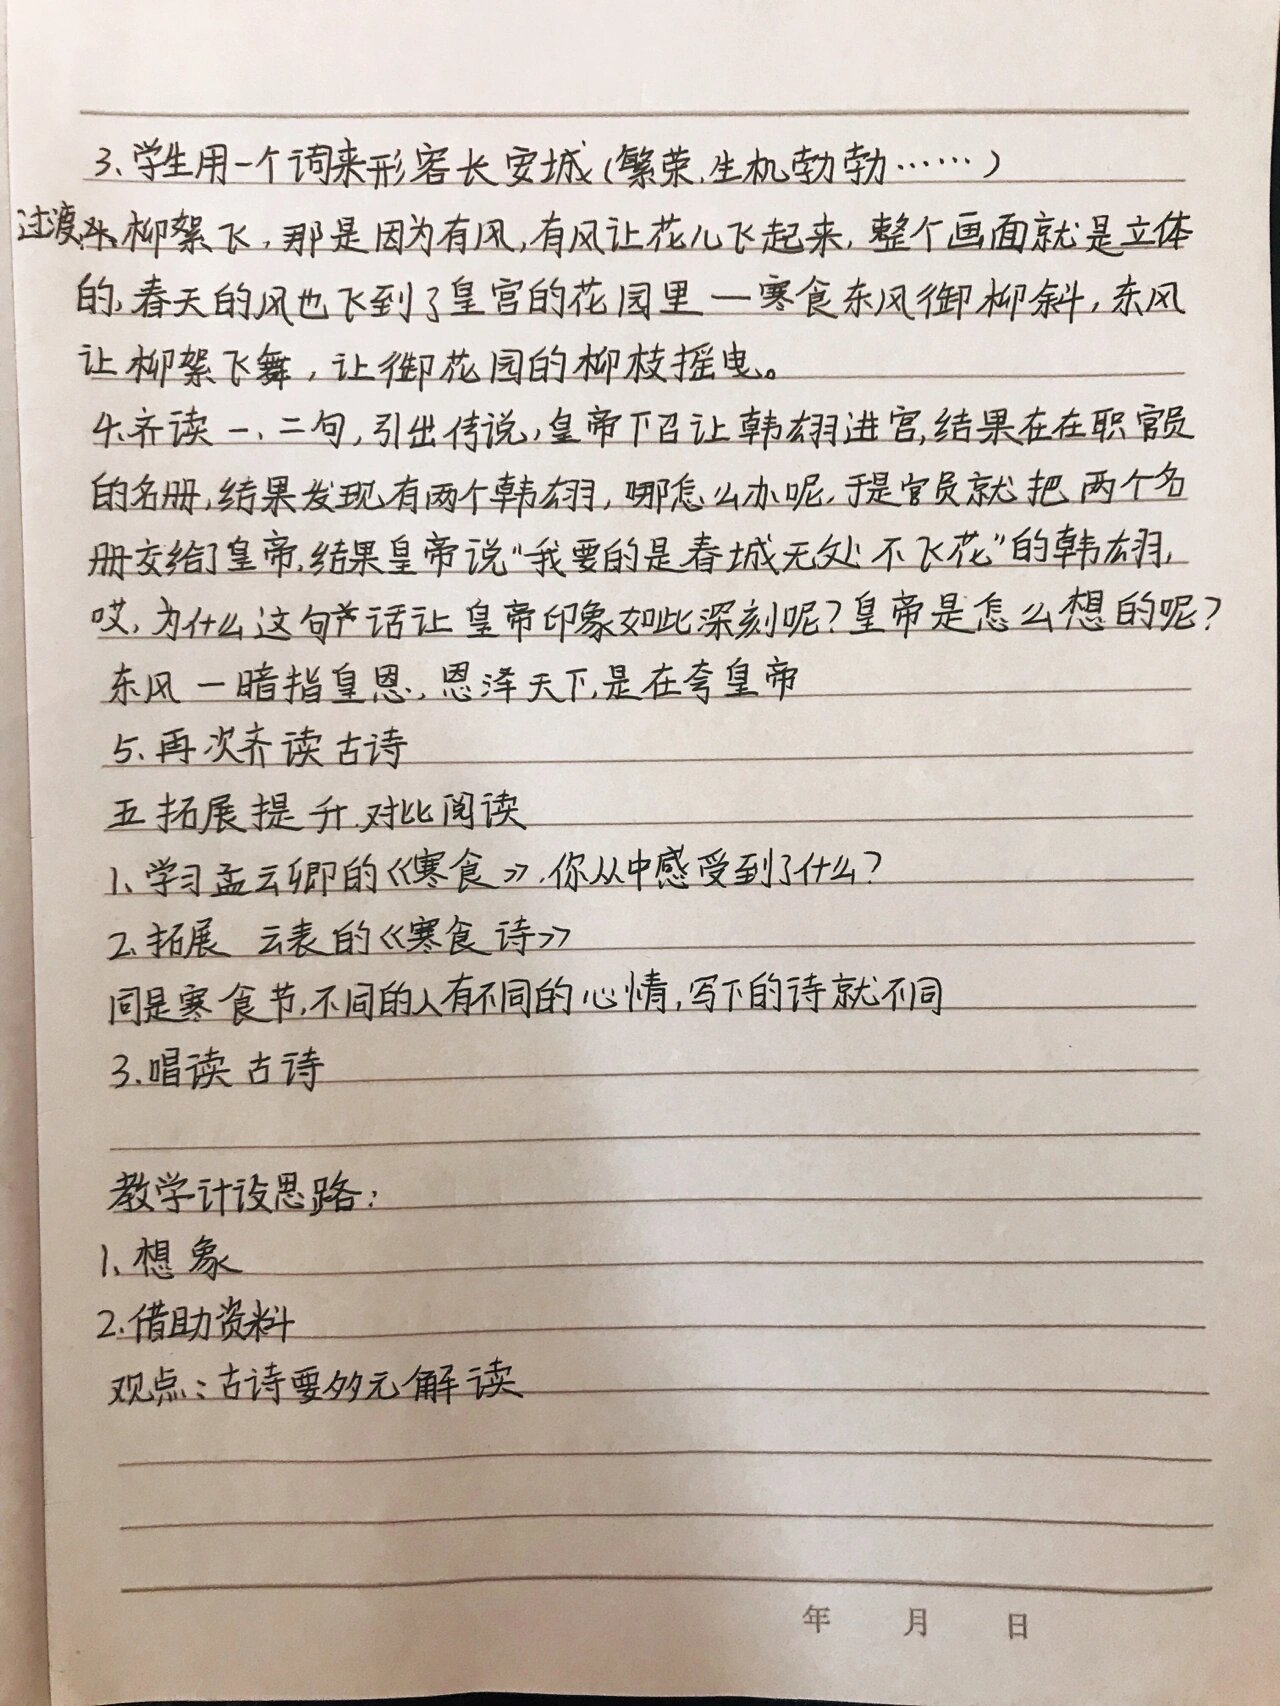 3、学生用一个词来形容长安城(繁荣、生机勃勃……)
过渡:柳絮飞，那是因为有风,有风让花儿飞起来，整个画面就是立体
的、春天的风也飞到了皇宫的花园里一寒食东风御柳斜，东风
让柳絮飞舞，让御花园的柳枝摇曳。
4.齐读一、二句，引出传说，皇帝下召让韩翃进宫,结果在在职官员
的名册,结果发现有两个韩翃，哪怎么办呢,于是官员就把两个名
册交给了皇帝,结果皇帝说“我要的是春城无处不飞花”的韩翃,
哎，为什么这句话让皇帝印象如此深刻呢?皇帝是怎么想的呢?
东风一暗指皇恩、恩泽天下,是在夸皇帝
5、再次齐读古诗
五拓展提升、对比阅读
1、学习孟云卿的《寒食》、你从中感受到了什么?
2.拓展 云表的《寒食诗》
同是寒食节,不同的人有不同的心情,写下的诗就不同
3.唱读古诗
教学计设思路:
1、想象
2.借助资料
观点:古诗要多元解读
年 月 日